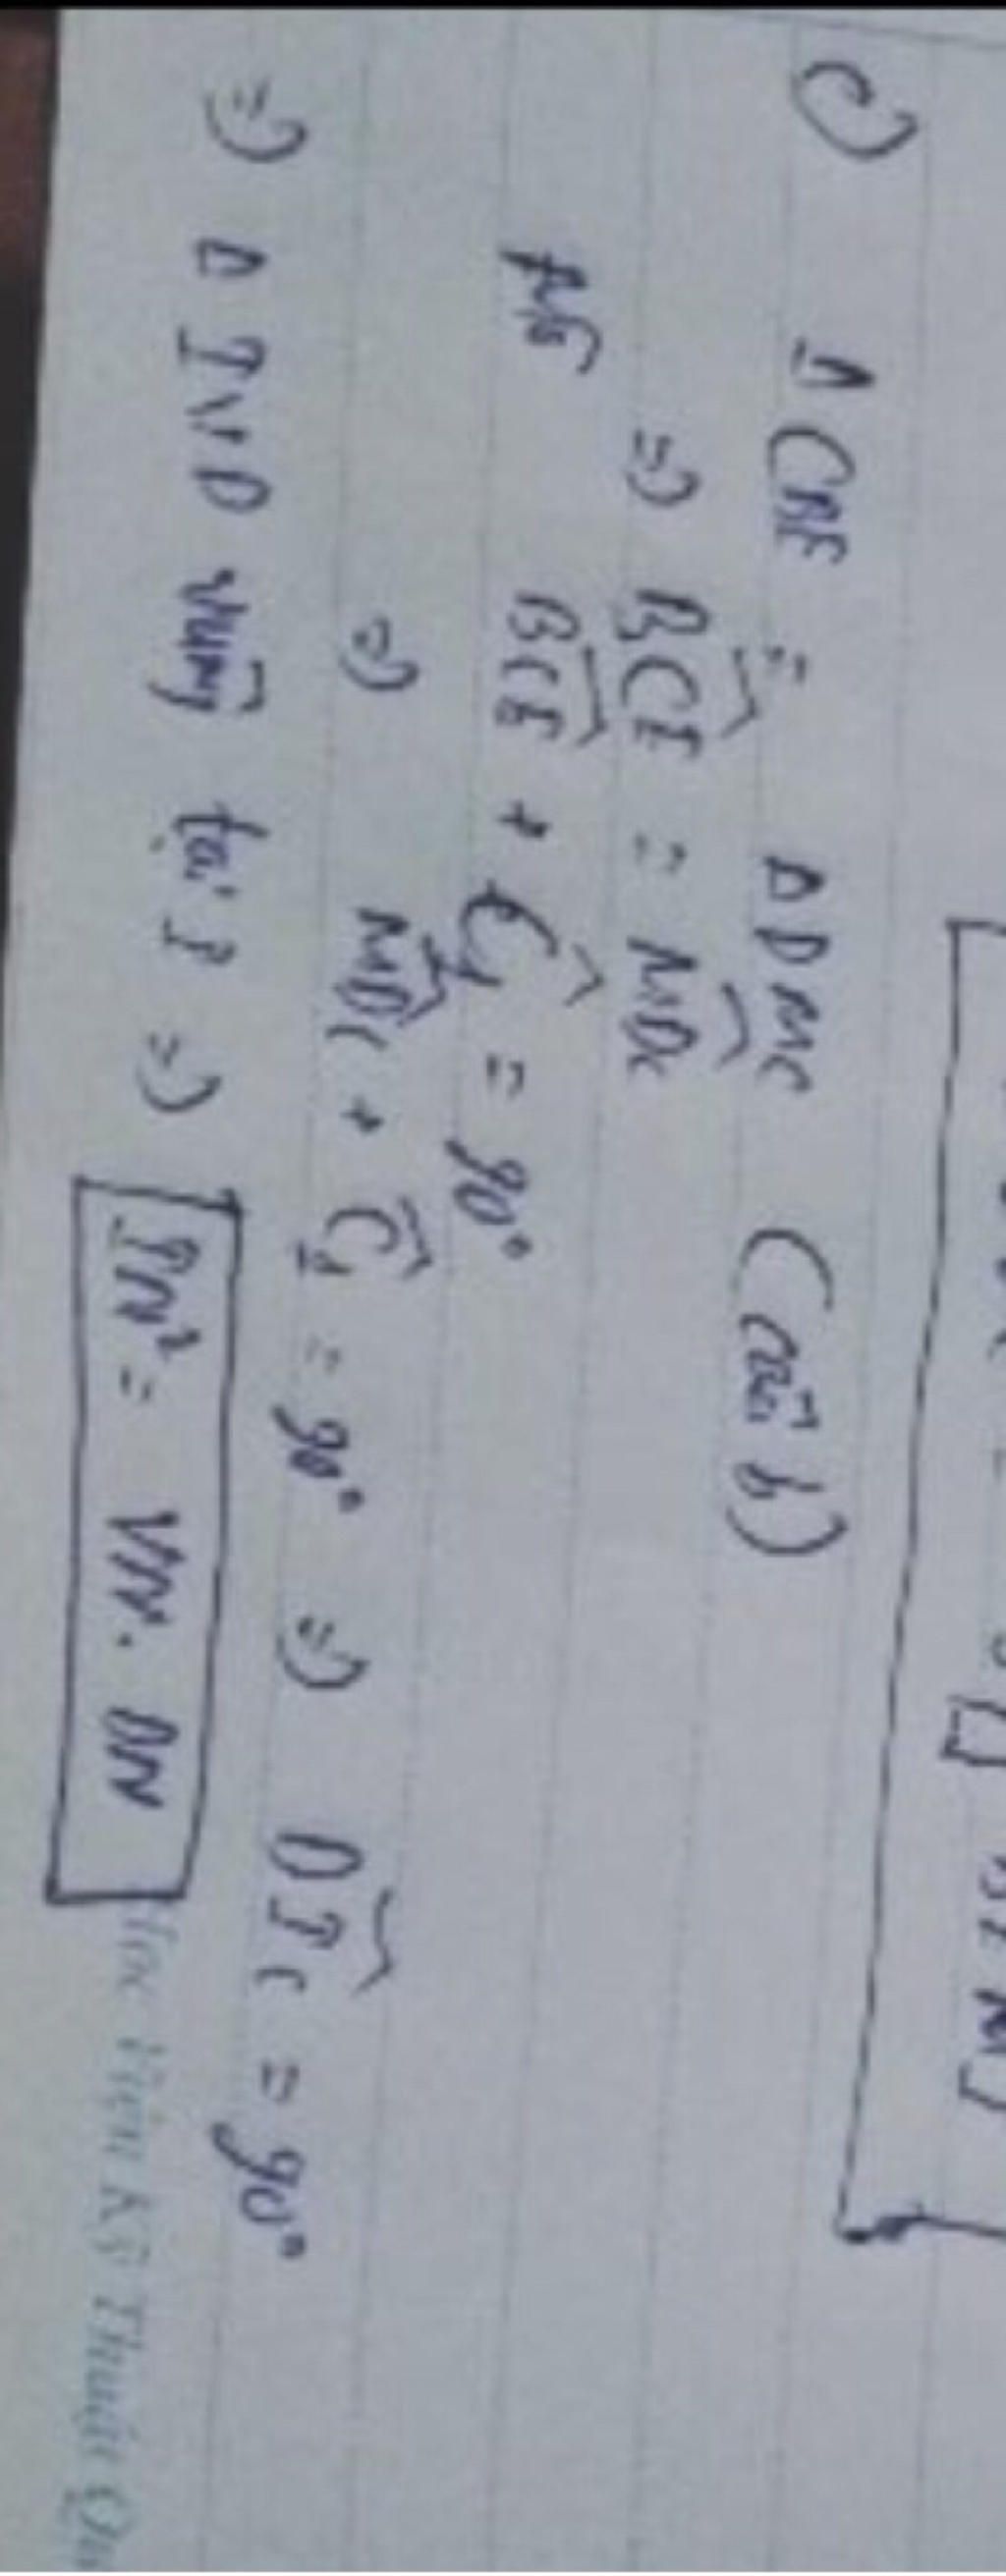 c) Δ CBE = Δ DMC (câu b)
=> BCE = MDC
Mà BCE + C₁ = 90°
=> MDC + C₁ = 90° => DIC = 90°
=> Δ IND vuông tại I => IN² = VN. DN
Học Viện Kỹ Thuật Qu